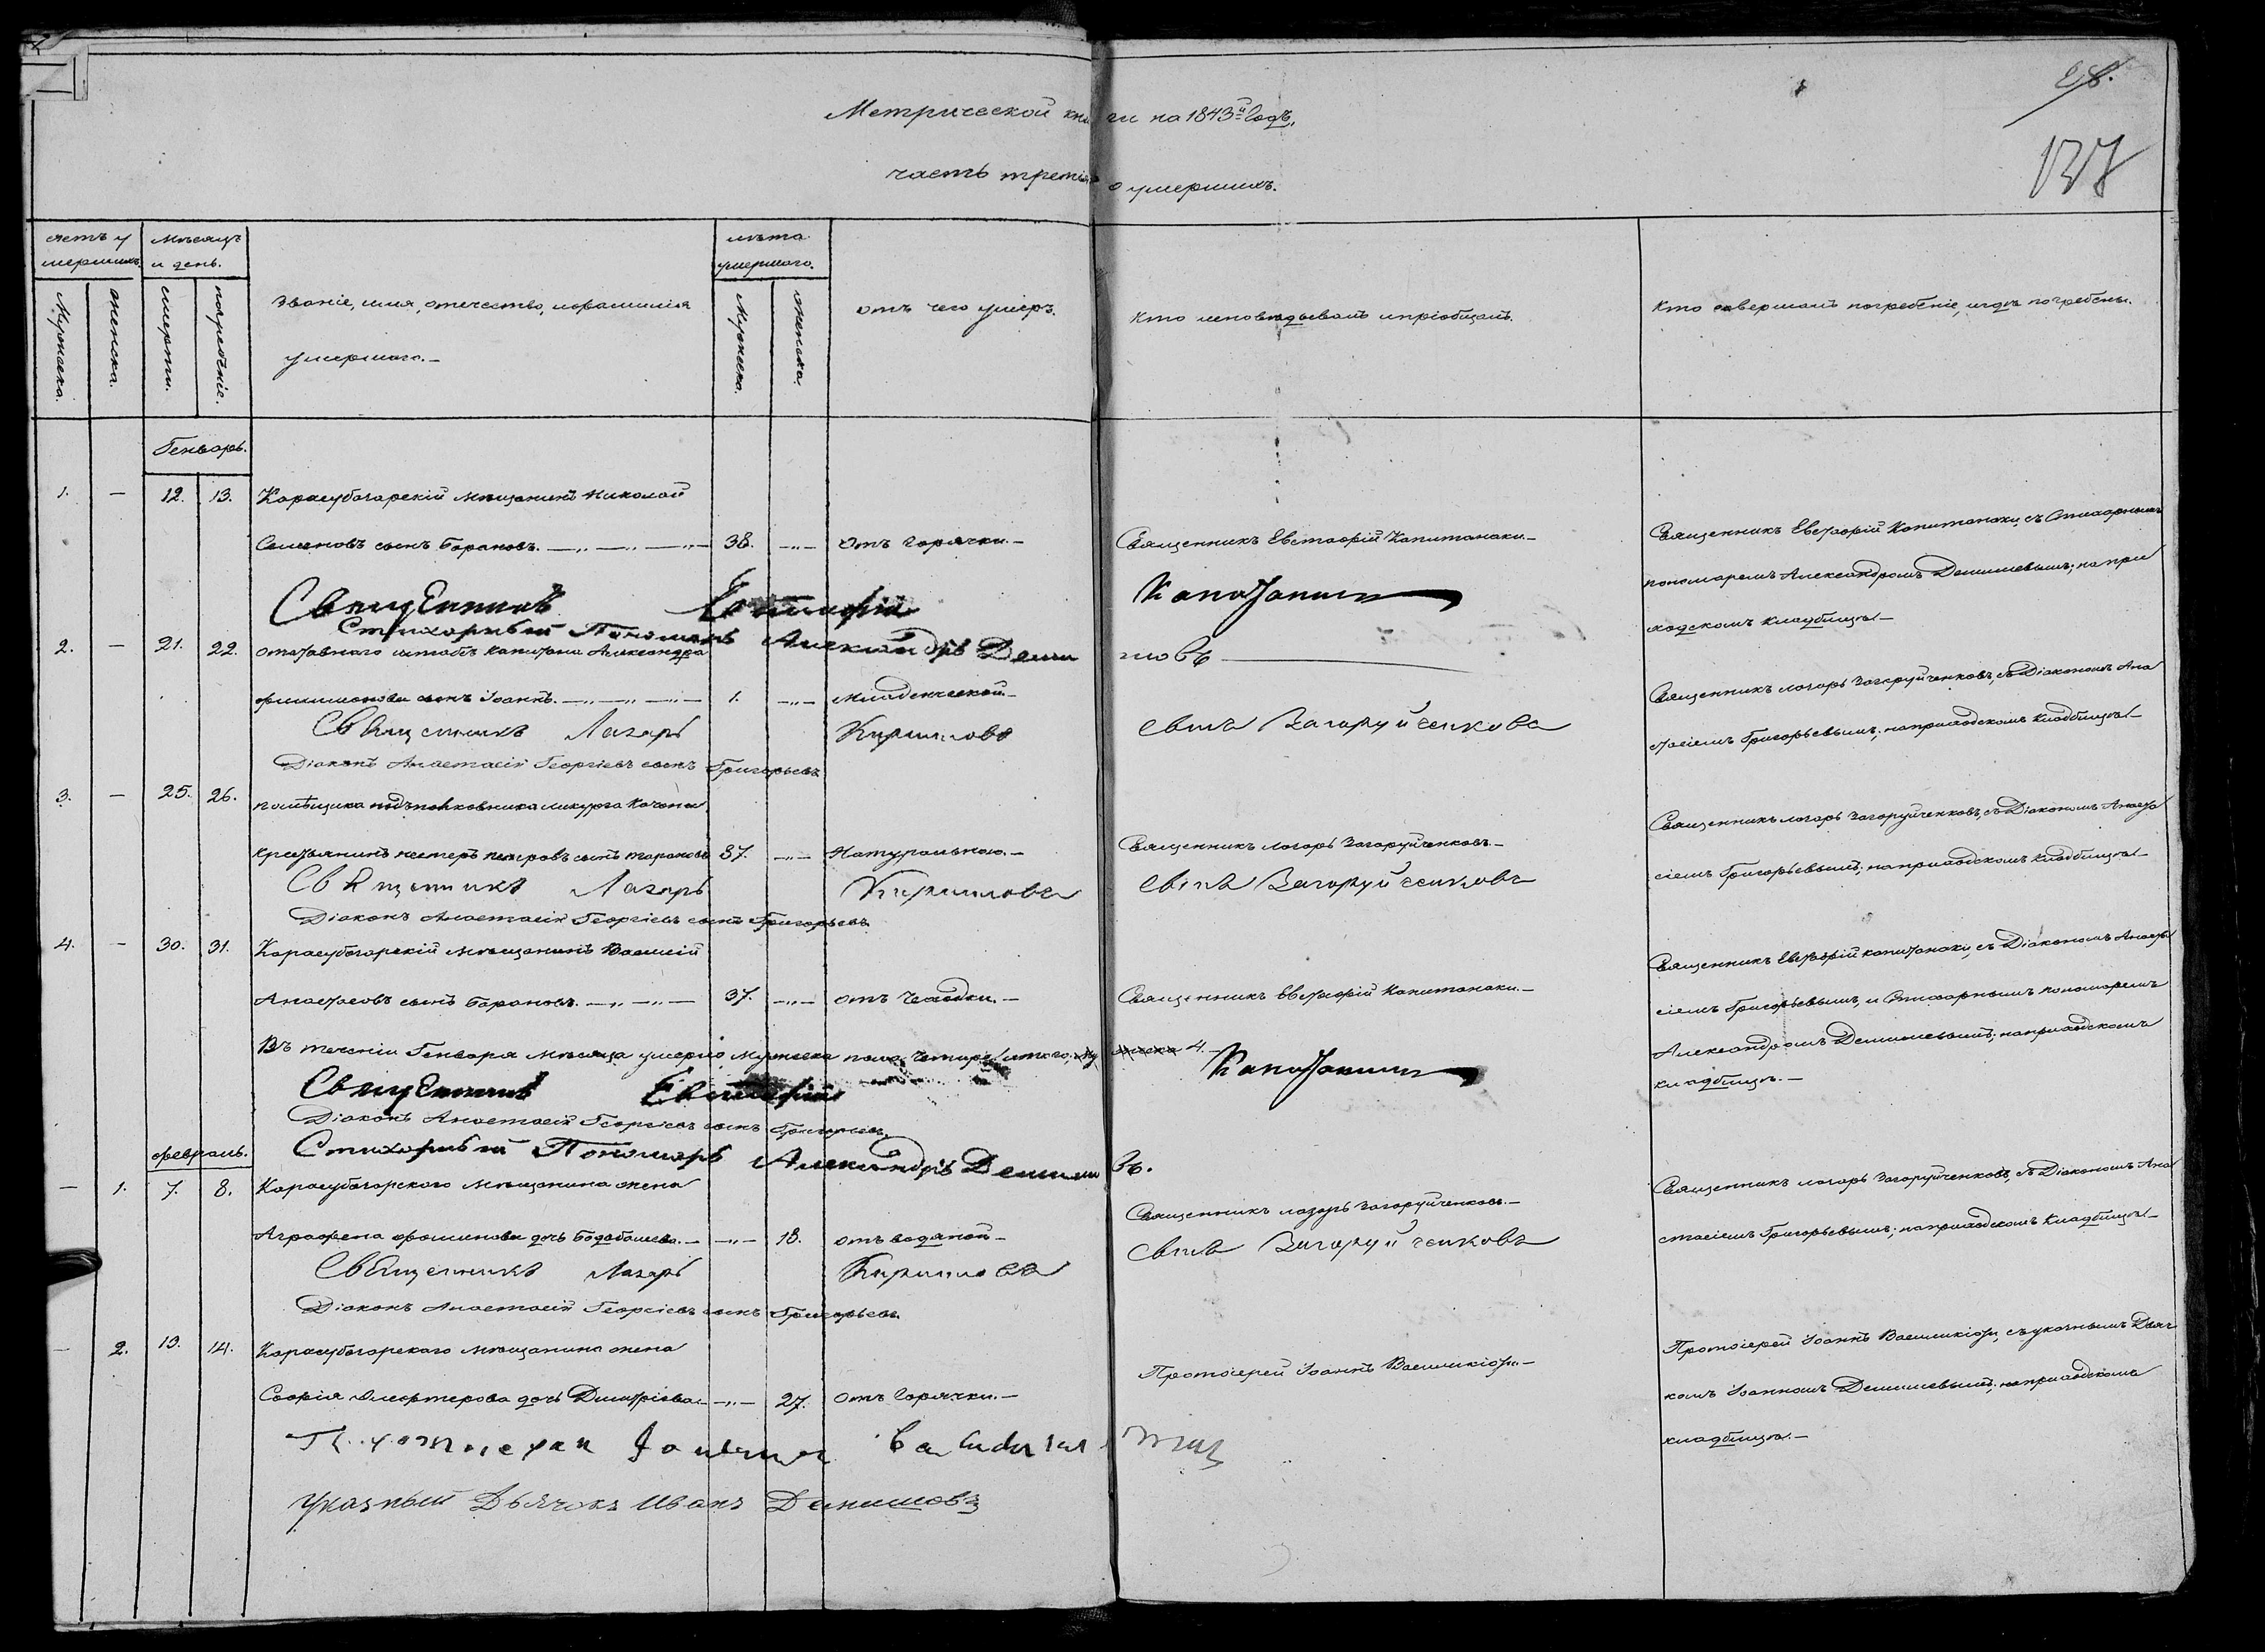 28.
137
Метрической книги на 1843й Годъ,
часть третія о умершихъ.
счетъ у
мершихъ.
Мѣсяцъ
и день.
лѣта
умершаго.
Мужеска.
женска.
смерти.
погребенiе.
Званіе, имя, отечество, ифамилія
умершаго.—
Мужеска.
женска.
отъ чего умеръ.
Кто исповѣдывалъ ипріобщалъ.
Кто совершалъ погребеніе, игдѣ погребены.
Генварь.
1. — 12. 13. Карасубазарскій мѣщанинъ Николай
Семеновъ сынъ Барановъ. 38. Отъ горячки.— Священникъ Евстафій Капитанаки.— Священникъ Евстафій Капитанаки, съ Стихарнымъ
пономаремъ Александромъ Демишевымъ; напри
ходскомъ кладбищѣ—
Священникъ Евстафій Капитанаки
Стихарный Пономарь Александръ Демишовъ
2. — 21. 22. отставнаго штабъ капитана Александра
филимонова сынъ Іоаннъ. 1. Младенческой.— Священникъ лазарь Загоруйченковъ, съ Діакономъ Ана
стасіемъ Григорьевымъ; наприходскомъ кладбищѣ—
Священникъ Лазарь Кириловъ сынъ Загоруйченковъ
Діаконъ Анастасій Георгіевъ сынъ Григорьевъ
3. — 25. 26. помѣщика подъполковника ликурга Качони
крестьянинъ нестеръ петровъ сынъ тарановъ 37. Натуральною.— Священникъ лазарь Загоруйченковъ.— Священникъ лазарь Загоруйченковъ, съ Діакономъ Анаста
сіемъ Григорьевымъ; наприходскомъ кладбищѣ—
Священникъ Лазарь Кириловъ сынъ Загоруйченковъ
Діаконъ Анастасій Георгіевъ сынъ Григорьевъ
4. — 30. 31. Карасубазарскій мѣщанинъ Василій
Анастасовъ сынъ Барановъ. 37. отъ Чахотки.— Священникъ Евстафій Капитанаки.— Священникъ Евстафій капитанаки, съ Діакономъ Анаста
сіемъ Григорьевымъ, и Стихарнымъ пономаремъ
Александромъ Демишевымъ; наприходскомъ
кладбищѣ.—
Въ теченіи Генваря мѣсяца умерло Мужеска пола четыре, итого, 4.
Священникъ Евстафій Капитанаки
Діаконъ Анастасій Георгіевъ сынъ Григорьевъ
Стихарный Пономарь Александръ Демишовъ.
февраль.
— 1. 7. 8. Карасубазарского мѣщанина жена
Аграфена фоминова дочь Бадабашева.— 18. отъ водяной— Священникъ лазарь Загоруйченковъ.— Священникъ лазарь Загоруйченковъ, съ Діакономъ Ана
стасіемъ Григорьевымъ; наприходскомъ кладбищѣ—
Священникъ Лазарь Кириловъ сынъ Загоруйченковъ
Діаконъ Анастасій Георгіевъ сынъ Григорьевъ.
— 2. 13. 14. Карасубазарскаго мѣщанина жена
Софія Дмитріева 27. отъ Горячки.— Протоіерей Іоаннъ Василикіоти.— Протоіерей Іоаннъ Василикіоти, съуказнымъ Дьяч
комъ Іоанномъ Демишевымъ; наприходскомъ
кладбищѣ.—
Протоіерей Іоаннъ
Указный Дьячокъ Иванъ Демишовъ